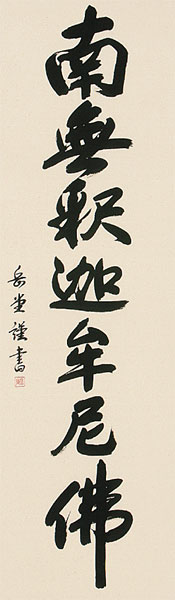 南無釈迦牟尼佛
岳堂謹書